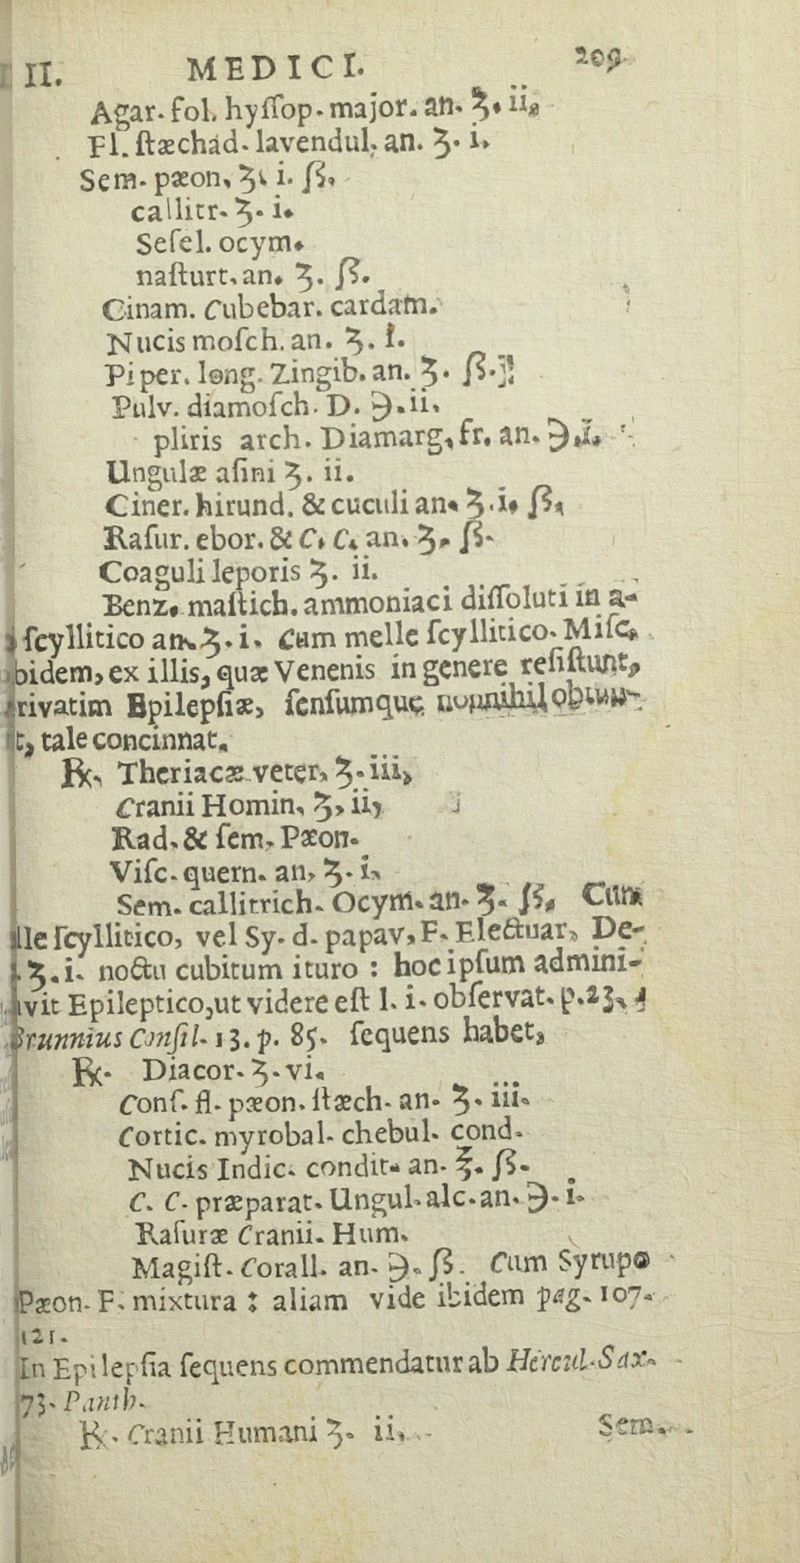 II. MEDICI. 209
Agar. fol. hyſſop. major. an. ʒ. ii.
Fl. ſtæchad. lavendul. an. ʒ. i.
Sem. pæon. ʒ. i. ß.
callitr. ʒ. i.
Seſel. ocym.
naſturt. an. ʒ. ß.
Cinam. Cubebar. cardam.
Nucis moſch. an. ʒ. i.
Piper. long. Zingib. an. ʒ. ß.
Pulv. diamoſch. D. ℈. ii.
pliris arch. Diamarg, fr. an. ℈. i.
Ungulæ aſini ʒ. ii.
Ciner. hirund. & cuculi an. ʒ. i. ß.
Raſur. ebor. & C. C. an. ʒ. ß.
Coaguli leporis ʒ. ii.
Benz. maſtich. ammoniaci diſſoluti in a-
ſcyllitico an. ʒ. i. Cum melle ſcyllitico. Miſc.
bidem, ex illis, quæ Venenis in genere reſiſtunt,
rivatim Epilepſiæ, ſenſumque nonnihil
t, tale concinnat.
℞. Theriacæ veter. ʒ. iii,
Cranii Homin. ʒ, ii,
Rad. & ſem. Pæon.
Viſc. quern. an. ʒ. i.
Sem. callitrich. Ocym. an. ʒ. ß. Cum
lle ſcyllitico, vel Sy. d. papav, F. Electuar. De-
ʒ. i. noctu cubitum ituro : hoc ipſum admini-
vit Epileptico, ut videre eſt l. i. obſervat. p. 23.
Brunnius Conſil. 13. p. 85. ſequens habet,
℞. Diacor. ʒ. vi.
Conſ. fl. pæon. ſtæch. an. ʒ. iii.
Cortic. myrobal. chebul. cond.
Nucis Indic. condit. an. ℥. ß.
C. C. præparat. Ungul. alc. an. ℈. i.
Raſuræ Cranii. Hum.
Magiſt. Corall. an. ℈. ß. Cum Syrupo
Pæon. F. mixtura : aliam vide ibidem pag. 107.
121.
In Epilepſia ſequens commendatur ab Hercul. Sax.
73. Panth.
℞. Cranii Humani ʒ. ii.
Sem.